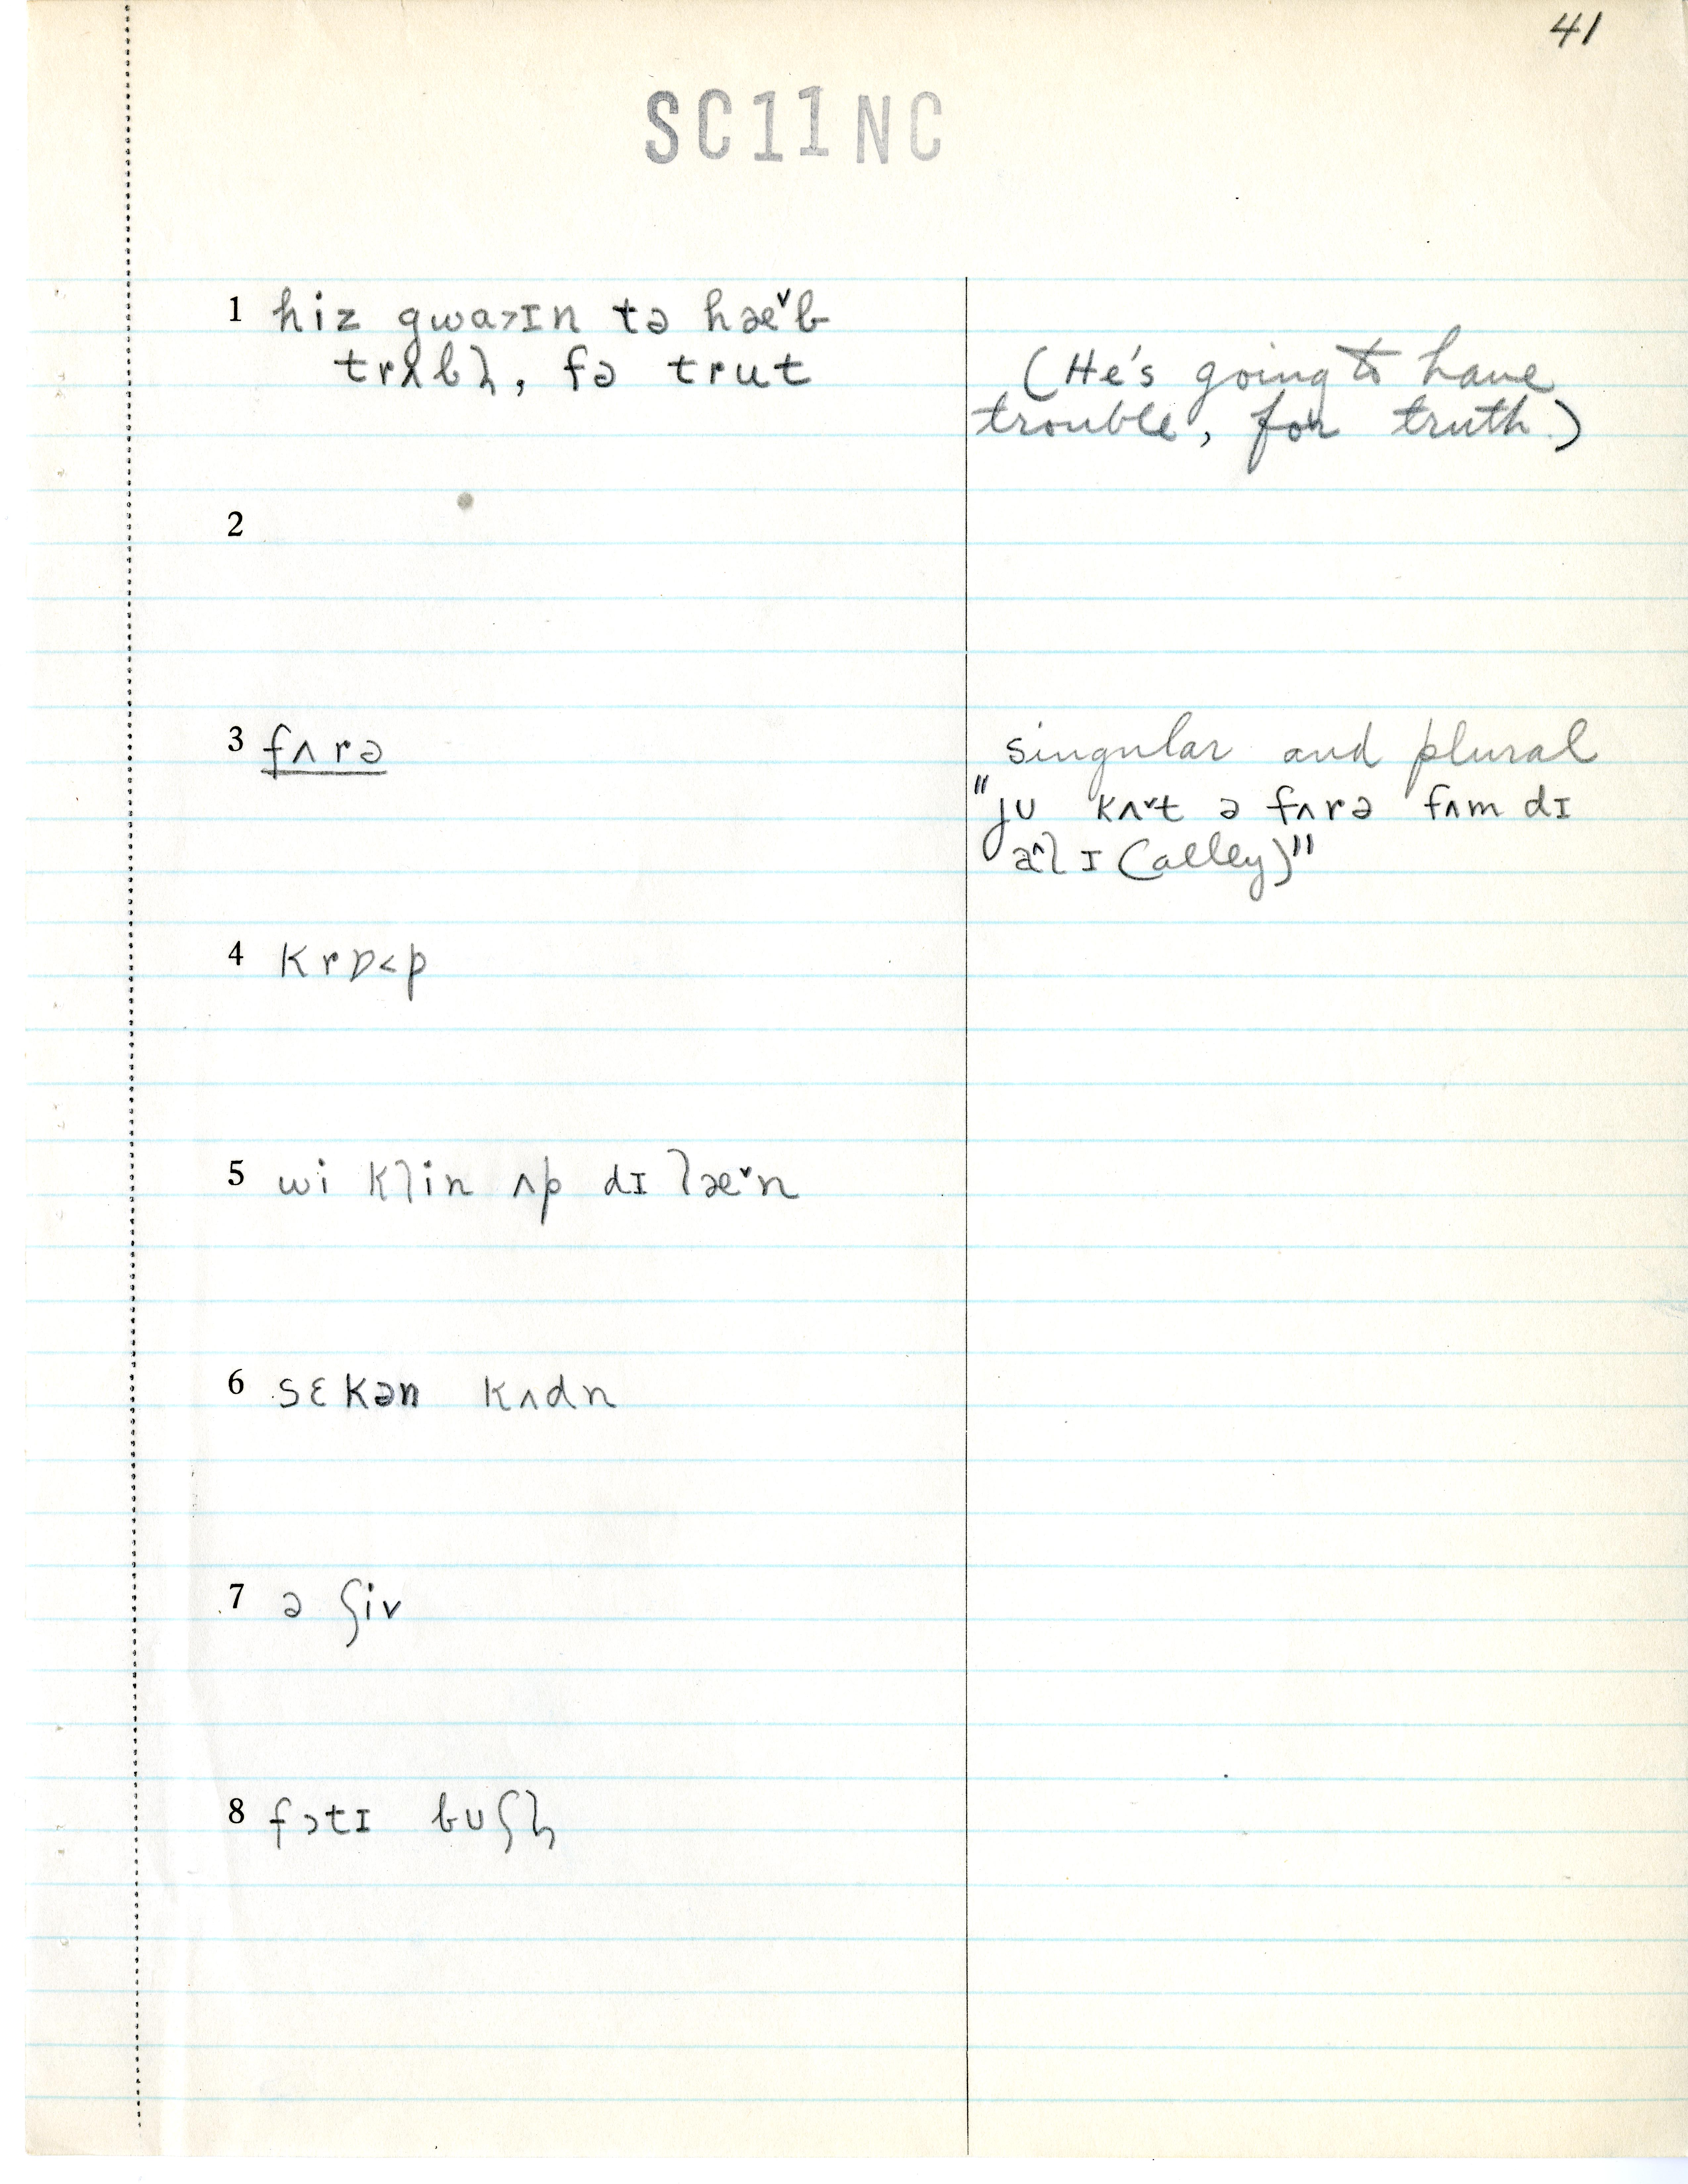 41
SC11NC
1 hiz gwa˃ɪn tə hæ˅b
trʌbl̩, fə trut
(He's going to have
trouble, for truth.)
2
3 fʌrə
singular and plural
"jʊ kʌ˅t ə fʌrə fʌm dɪ
a^lɪ (alley)"
4 krɒ˂p
5 wi klin ʌp dɪ læ˅n
6 sɛkən kʌdn
7 ə ʃiv
8 fɔtɪ bʊʃl̩